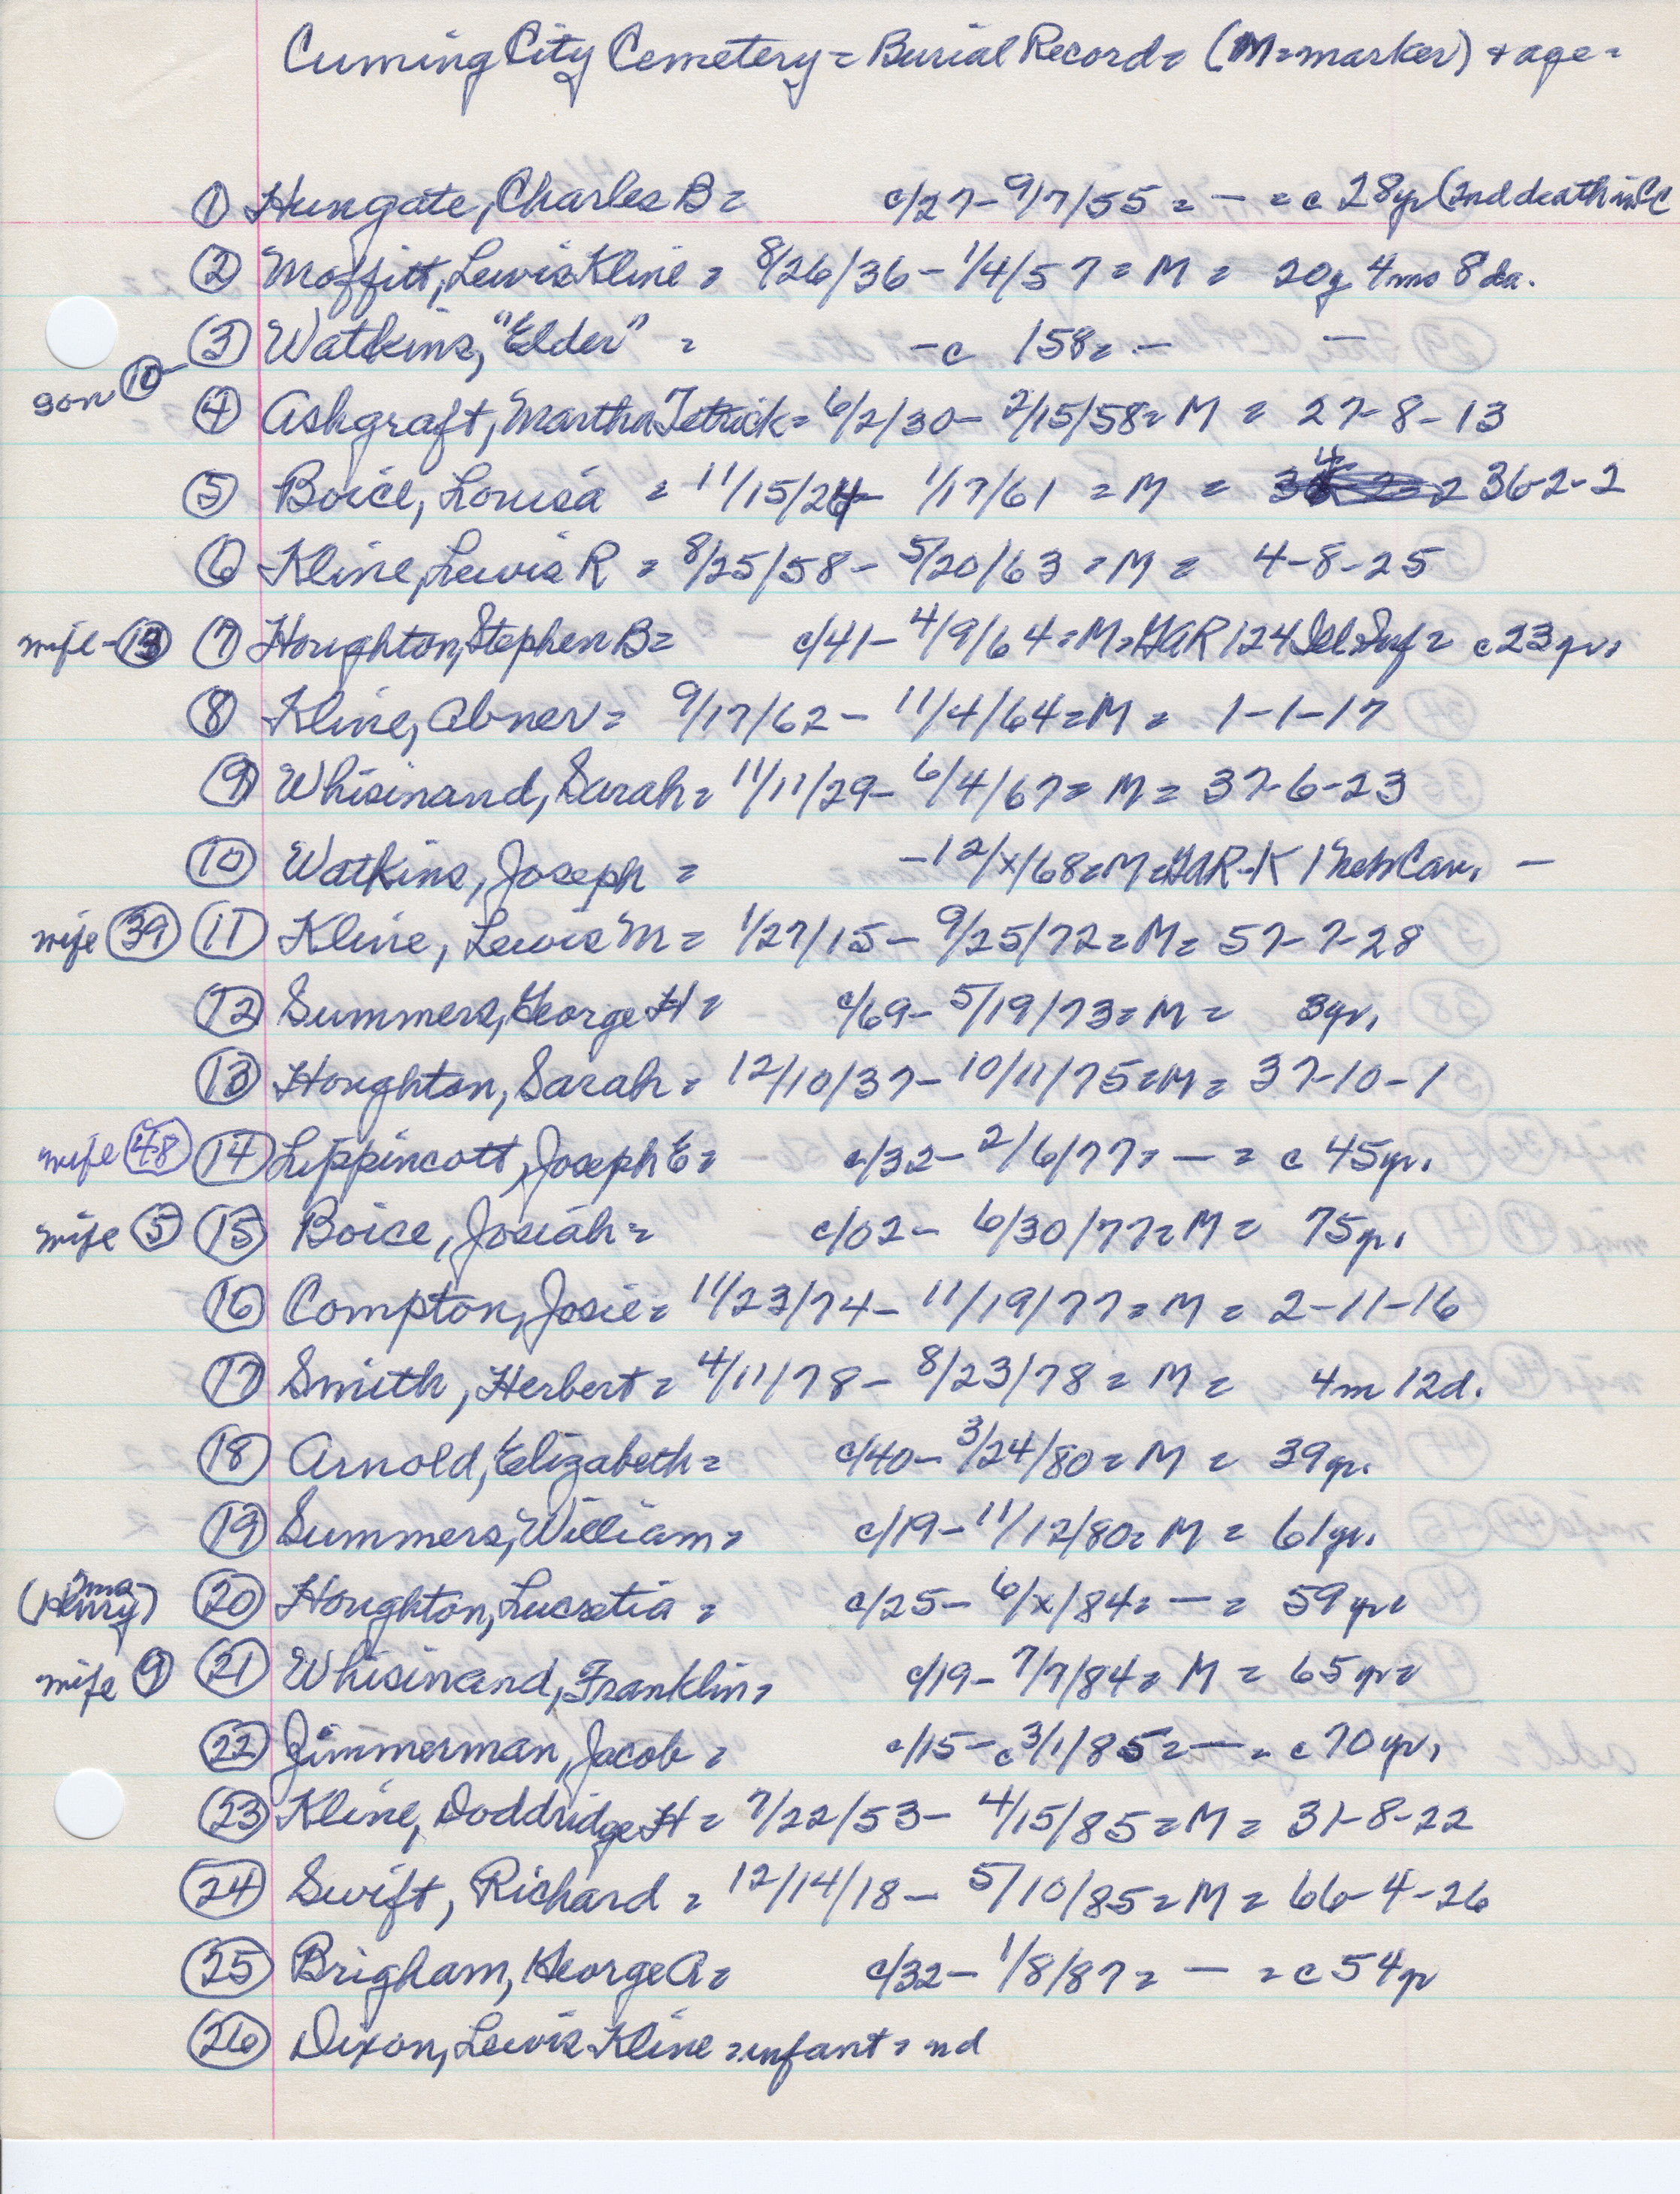 Cuming City Cemetery = Burial Record = (M = marker) + age =
① Hungate, Charles B = c/27 - 9/7/55 = - = c 28yr (2nd death in CC
② Moffitt, Lewis Kline = 8/26/36 - 1/4/57 = M = 20y 4mo 8da.
③ Watkins, "Elder" = - c 158 = - -
son ⑩
④ Ashgraft, Martha Tetrick = 6/2/30 - 2/15/58 = M = 27-8-13
⑤ Boice, Louisa = 11/15/24 - 1/17/61 = M = 36-2-2
⑥ Kline, Lewis R = 8/25/58 - 5/20/63 = M = 4-8-25
wife - ⑬ ⑦ Houghton, Stephen B = c/41 - 4/9/64 = M = GAR 124 Ill Inf = c 23yr.
⑧ Kline, Abner = 9/17/62 - 11/4/64 = M = 1-1-17
⑨ Whisinand, Sarah = 11/11/29 - 6/4/67 = M = 37-6-23
⑩ Watkins, Joseph = - 12/x/68 = M = GAR - K 1 Neb Cav. -
wife ㊴ ⑪ Kline, Lewis M = 1/27/15 - 9/25/72 = M = 57-7-28
⑫ Summers, George H = c/69 - 5/19/73 = M = 3yr.
⑬ Houghton, Sarah = 12/10/37 - 10/11/75 = M = 37-10-1
wife ㊽ ⑭ Lippincott, Joseph E = c/32 - 2/6/77 = - = c 45yr.
wife ⑤ ⑮ Boice, Josiah = c/02 - 6/30/77 = M = 75yr.
⑯ Compton, Josie = 11/23/74 - 11/19/77 = M = 2-11-16
⑰ Smith, Herbert = 4/11/78 - 8/23/78 = M = 4m 12d.
⑱ Arnold, Elizabeth = c/40 - 3/24/80 = M = 39yr.
⑲ Summers, William = c/19 - 11/12/80 = M = 61yr.
(Mrs Henry) ⑳ Houghton, Lucretia = c/25 - 6/x/84 = - = 59yr.
wife ⑨ ㉑ Whisinand, Franklin = c/19 - 7/7/84 = M = 65yr.
㉒ Zimmerman, Jacob = c/15 - c 3/1/85 = - = c 70yr.
㉓ Kline, Doddridge H = 7/22/53 - 4/15/85 = M = 31-8-22
㉔ Swift, Richard = 12/14/18 - 5/10/85 = M = 66-4-26
㉕ Brigham, George A = c/32 - 1/8/87 = - = c 54yr
㉖ Dixon, Lewis Kline = infant = nd